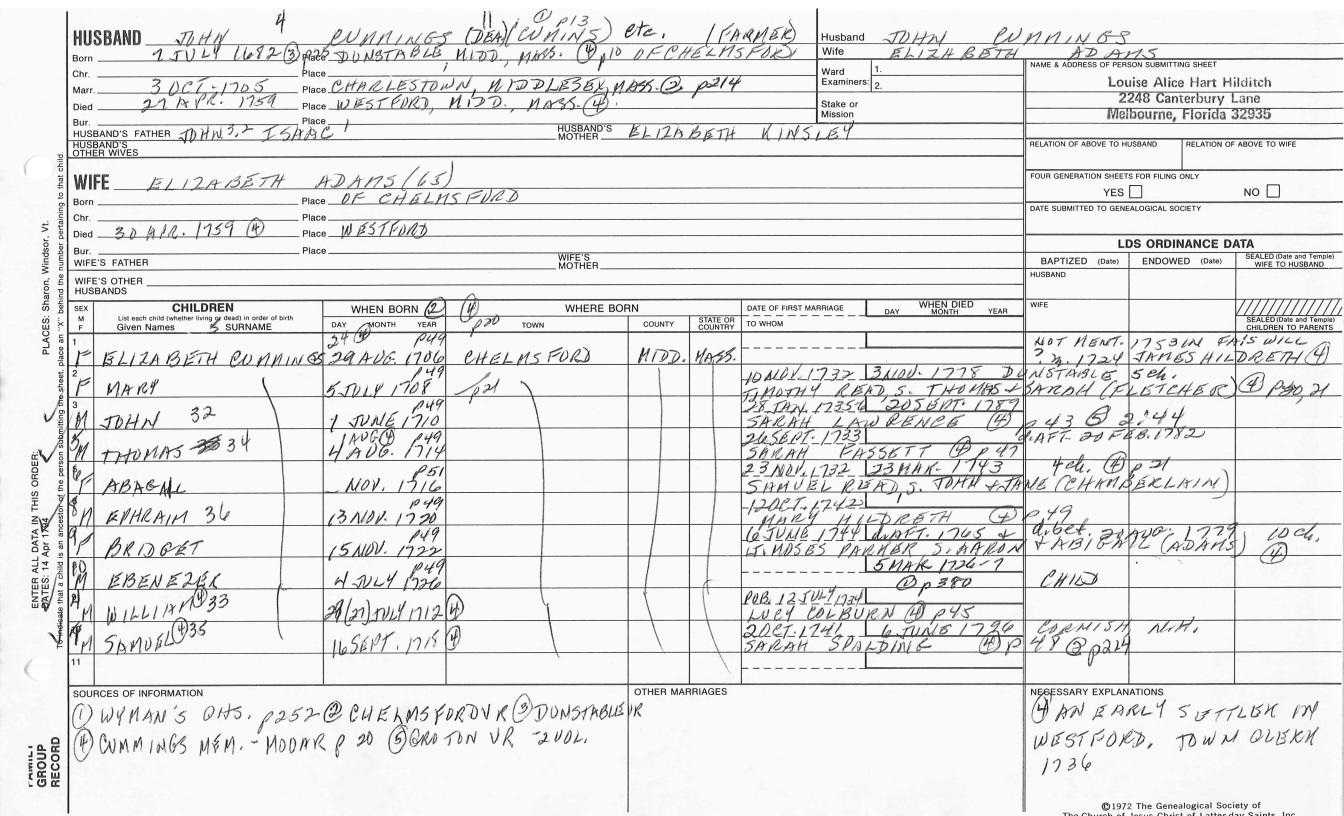 HUSBAND JOHN 4 CUMMINGS (DEA) (CUMINS) 11 ① p13 etc. (FARMER)
Born 7 JULY 1682 ③ p25 Place DUNSTABLE, MIDD, MASS. ④ p10 OF CHELMSFORD
Chr. Place
Marr. 3 OCT. 1705 Place CHARLESTOWN, MIDDLESEX, MASS. ②, p214
Died 27 APR. 1759 Place WESTFORD, MIDD., MASS. ④.
Bur. Place
HUSBAND'S FATHER JOHN 3,2 ISAAC 1 HUSBAND'S MOTHER ELIZABETH KINSLEY
HUSBAND'S OTHER WIVES
Husband JOHN CUMMINGS
Wife ELIZABETH ADAMS
Ward 1.
Examiners: 2.
Stake or Mission
NAME & ADDRESS OF PERSON SUBMITTING SHEET
Louise Alice Hart Hilditch
2248 Canterbury Lane
Melbourne, Florida 32935
RELATION OF ABOVE TO HUSBAND RELATION OF ABOVE TO WIFE
FOUR GENERATION SHEETS FOR FILING ONLY
YES NO
DATE SUBMITTED TO GENEALOGICAL SOCIETY
WIFE ELIZABETH ADAMS (65)
Born Place OF CHELMSFORD
Chr. Place
Died 30 APR. 1759 ④ Place WESTFORD
Bur. Place
WIFE'S FATHER WIFE'S MOTHER
WIFE'S OTHER HUSBANDS
LDS ORDINANCE DATA
BAPTIZED (Date) ENDOWED (Date) SEALED (Date and Temple) WIFE TO HUSBAND
HUSBAND
WIFE
SEALED (Date and Temple) CHILDREN TO PARENTS
SEX M F CHILDREN
List each child (whether living or dead) in order of birth
Given Names 5 SURNAME
WHEN BORN ② DAY MONTH YEAR
④ p20 WHERE BORN TOWN COUNTY STATE OR COUNTRY
DATE OF FIRST MARRIAGE TO WHOM
WHEN DIED DAY MONTH YEAR
1 24 ④ p49 NOT MENT. 1753 IN FA'S WILL
F ELIZABETH CUMMINGS 29 AUG. 1706 CHELMSFORD MIDD. MASS. ? m. 1724 JAMES HILDRETH ④
2 p49 10 NOV. 1732 3 NOV. 1778 DUNSTABLE 5 ch.
F MARY 5 JULY 1708 p21 TIMOTHY READ, S. THOMAS + SARAH (FLETCHER) ④ p20, 21
3 p49 28 JAN. 1735-6 20 SEPT. 1789
M JOHN 32 1 JUNE 1710 SARAH LAWRENCE ④ p43 ⑤ 2:44
5 1 AUG ④ p49 26 SEPT. 1733 d. AFT. 20 FEB. 1782
M THOMAS 34 4 AUG. 1714 SARAH FASSETT ④ p47
6 p51 23 NOV. 1732 23 MAR. 1743 4 ch. ④ p21
F ABAGAIL NOV. 1716 SAMUEL READ, S. JOHN + JANE (CHAMBERLAIN)
8 p49 12 OCT. 1742
M EPHRAIM 36 13 NOV. 1720 MARY HILDRETH ④ p49
9 p49 6 JUNE 1744 d. AFT. 1765 + d. bet. AUG. 1779 10 ch.
F BRIDGET 15 NOV. 1722 LT. MOSES PARKER S. AARON + ABIGAIL (ADAMS) ④
10 p49 5 MAR 1726-7
M EBENEZER 4 JULY 1726 ① p380 CHILD
4 PUB. 12 JULY 1734
M WILLIAM ④ 33 29 (27) JULY 1712 ④ LUCY COLBURN ④ p45
7 2 OCT. 1741 6 JUNE 1796 CORNISH N.H.
M SAMUEL ④ 35 16 SEPT. 1718 ④ SARAH SPALDING ④ p 48 ② p214
11
SOURCES OF INFORMATION
① WYMAN'S CHS. p252 ② CHELMSFORD VR ③ DUNSTABLE VR
④ CUMMINGS MEM. - MOOAR p 20 ⑤ GROTON VR - 2 VOL.
OTHER MARRIAGES
NECESSARY EXPLANATIONS
④ AN EARLY SETTLER IN
WESTFORD. TOWN CLERK
1736
©1972 The Genealogical Society of
The Church of Jesus Christ of Latter-day Saints, Inc.
FAMILY GROUP RECORD
ENTER ALL DATA IN THIS ORDER:
DATES: 14 Apr 1794
PLACES: Sharon, Windsor, Vt.
To indicate that a child is an ancestor of the person submitting the sheet, place an "X" behind the number pertaining to that child